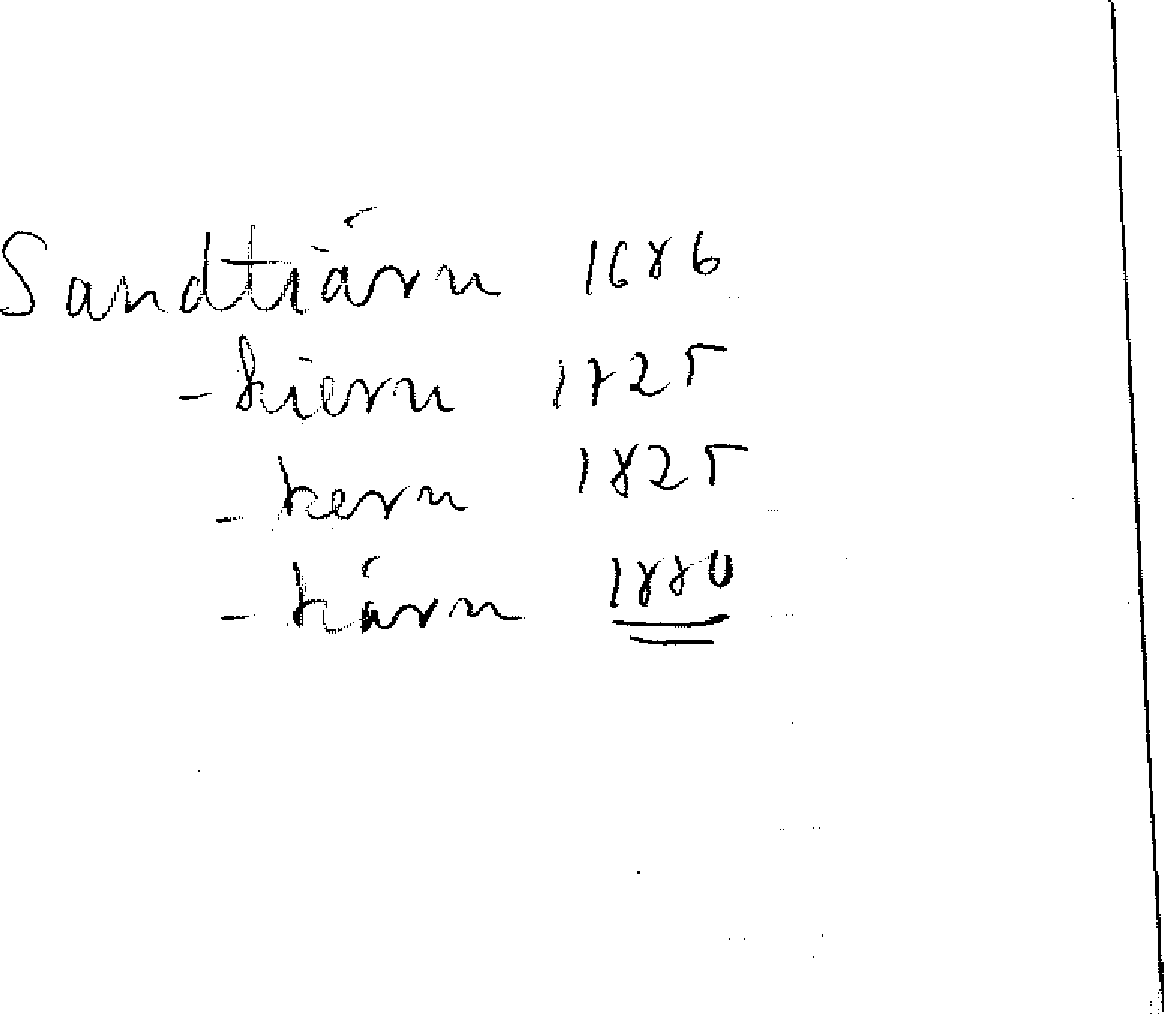 Sandtiärn 1686
-kiern 1825
-kern 1825
-kärn 1880